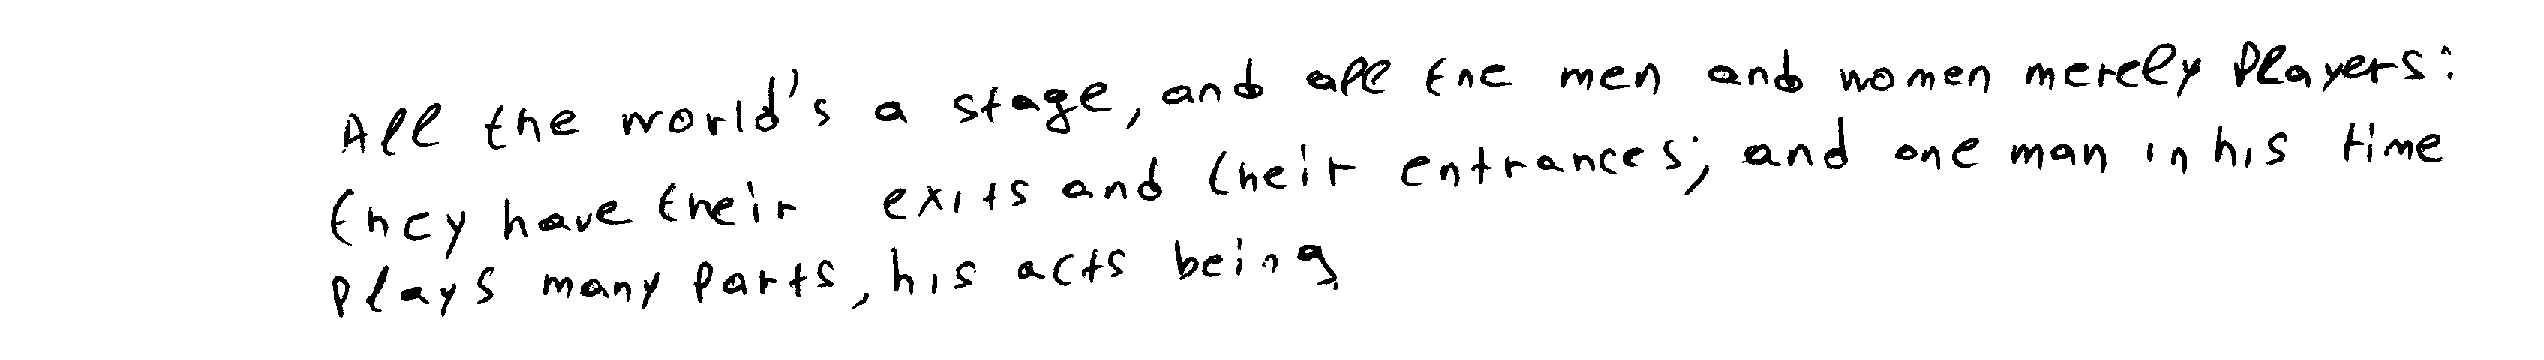 All the world's a stage, and all the men and women merely Players:
they have their exits and their entrances; and one man in his time
plays many parts, his acts being